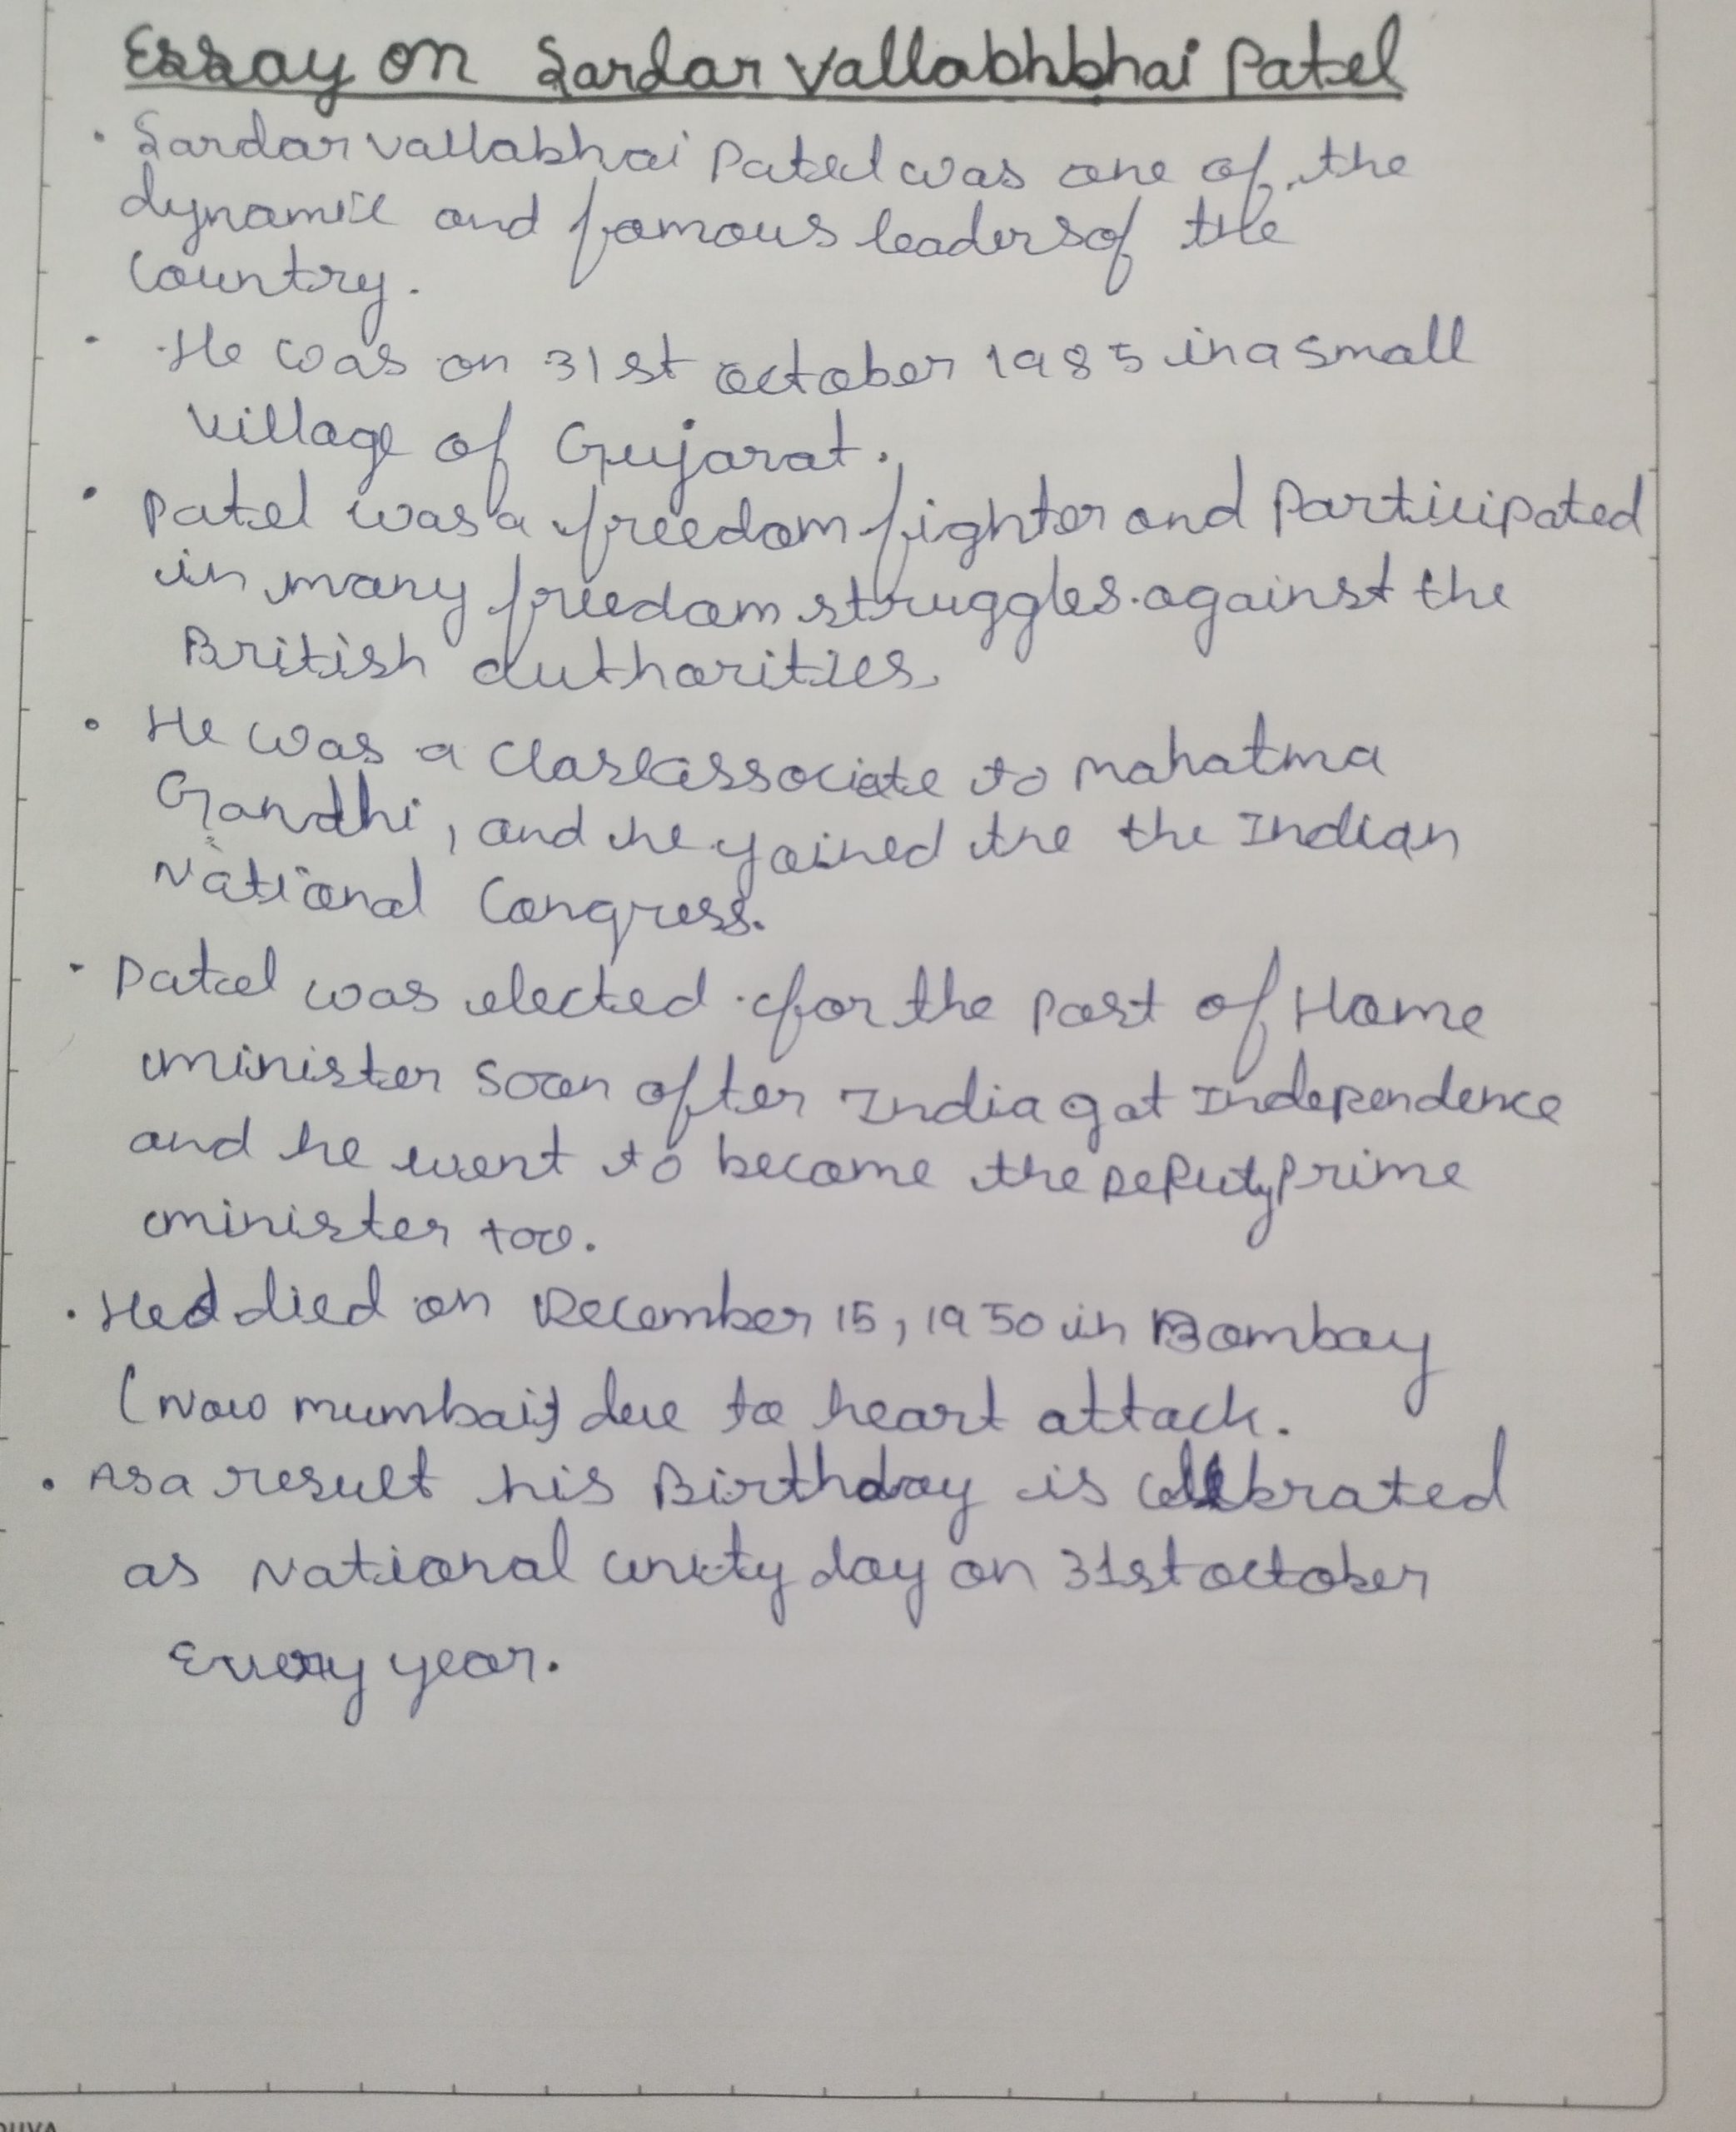 Essay on Sardar Vallabhbhai Patel
• Sardar vallabhai Patel was one of the
dynamic and famous leaders of the
Country.
• He was on 31st october 1985 in a small
village of Gujarat.
• Patel was a freedom fighter and Participated
in many freedom struggles. against the
British authorities.
• He was a Closeassociate to Mahatma
Gandhi, and he yoined the the Indian
National Congress.
• Patel was elected for the Post of Home
minister soon after India got Independence
and he went to become the Deputy Prime
minister too.
• He died on December 15, 1950 in Bombay
(Now mumbai) due to heart attack.
• As a result his Birthday is celebrated
as National unity day on 31st october
Every year.